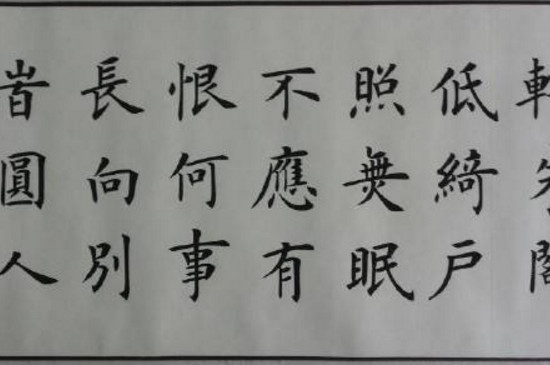 轉朱閣
低綺戶
照無眠
不應有
恨何事
長向別
旹圓人